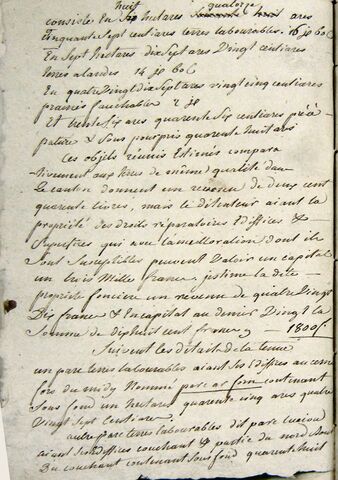 huit quatorze
consiste En Six hectares Soixante huit ares
Cinquante Sept centiares terres labourables. 16 jo bol
En Sept hectares dix Sept ares Vingt centiares
terres a landes 14 jo bol
En quatre Vingt dix Sept ares vingt cinq centiares
prairies fauchable 2 jo
Et trente Six ares quarente Six centiares
pature & Sous pourpris quarente huit ars
Ces objets réunis Estimés compara
tivement aux terres de meme qualité dans
le canton donnent un revenu de deux cent
quarente livres, mais le détenteur aiant la
propriété des droits réparatoires Ediffices &
Superfices qui avec l'amelloration dont ils
Sont Suseptibles peuvent Valoir un capital
un trois Mille francs. jestime la dite
propriété foncière un revenu de quatre Vingt
Dix francs & En capital au denier Vingt la
Somme de dixhuit cent francs 1800f
Suivent les détails de la tenue
un parc terres labourables aiant Ses Ediffices au cerne
fors du midy Nommé parc ar forn contenant
Sous fond un hectares quarente cinq ares quatre
Vingt Sept Centiares
autre parc terres labourables dit parc
aiant Ses Ediffices couchant & partie du nord
Du couchant contenant Sous fond quarente huit